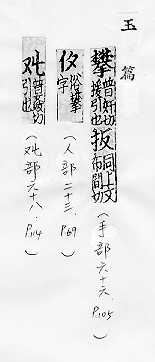 玉篇
攀普奸切援引也扳同上又布間切
（手部六十六．P.105）
俗攀字
（人部二十三．P.69）
𠬜普切引也
（𠬜部六十八．P.114）